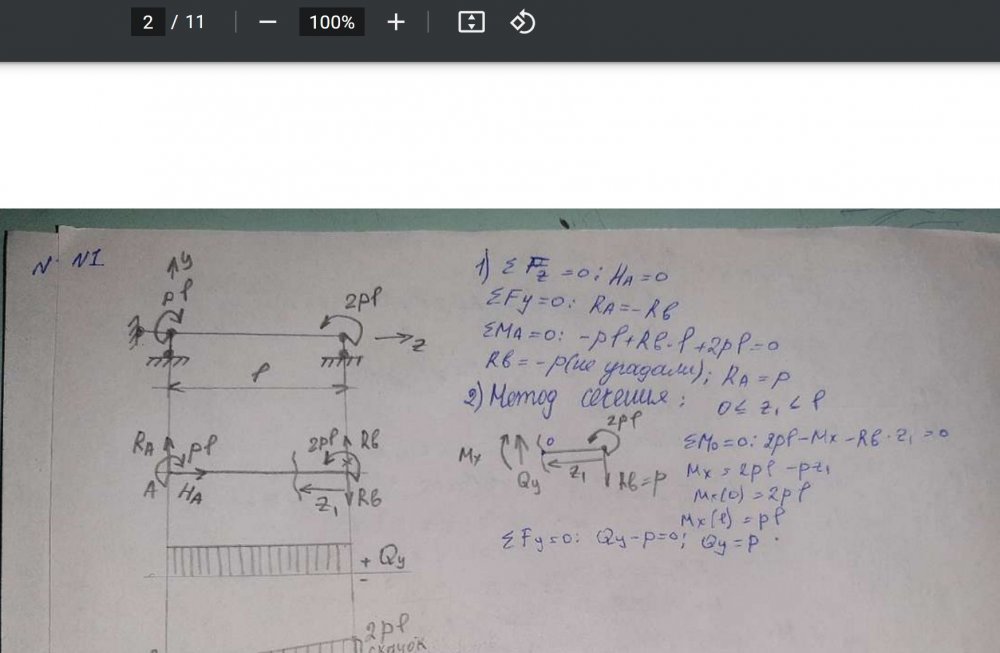 2 / 11
100%
N1
y
pl
2pl
z
l
RA
pl
2pl
RB
A
HA
z1
RB
+ Qy
-
2pl
скачок
1) ΣFz = 0: HA = 0
ΣFy=0: RA = -RB
ΣMA=0: -pl+RB·l+2pl=0
RB = -p (не угадали); RA = p
2) Метод сечения: 0 ≤ z1 < l
Mx
Qy
0
z1
2pl
RB=p
ΣM0=0: 2pl-Mx-RB·z1=0
Mx = 2pl - pz1
Mx(0) = 2pl
Mx(l) = pl
ΣFy=0: Qy-p=0; Qy=p